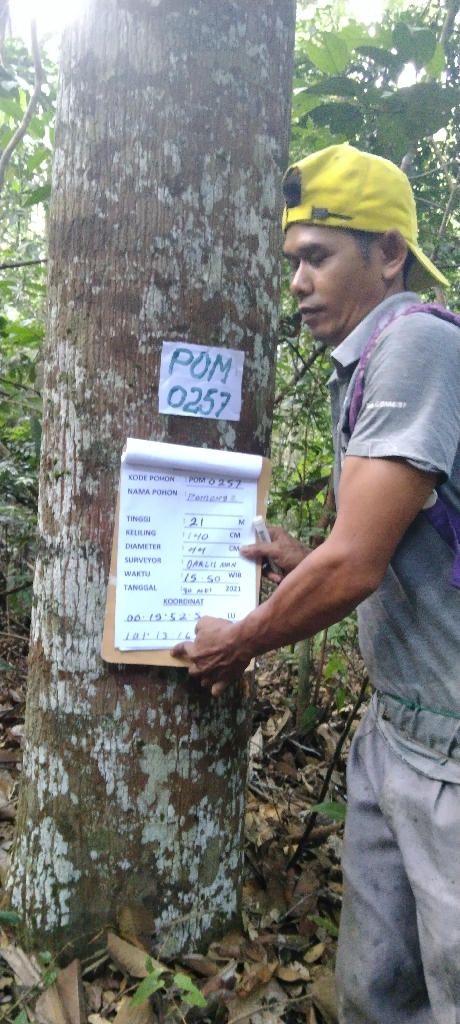 POM
0257
KODE POHON : POM 0257
NAMA POHON :
TINGGI : 21 M
KELILING : 140 CM
DIAMETER : 44 CM
SURVEYOR :
WAKTU : 15.50 WIB
TANGGAL : 30 MEI 2021
KOORDINAT
00.19.52. LU
101.13.16